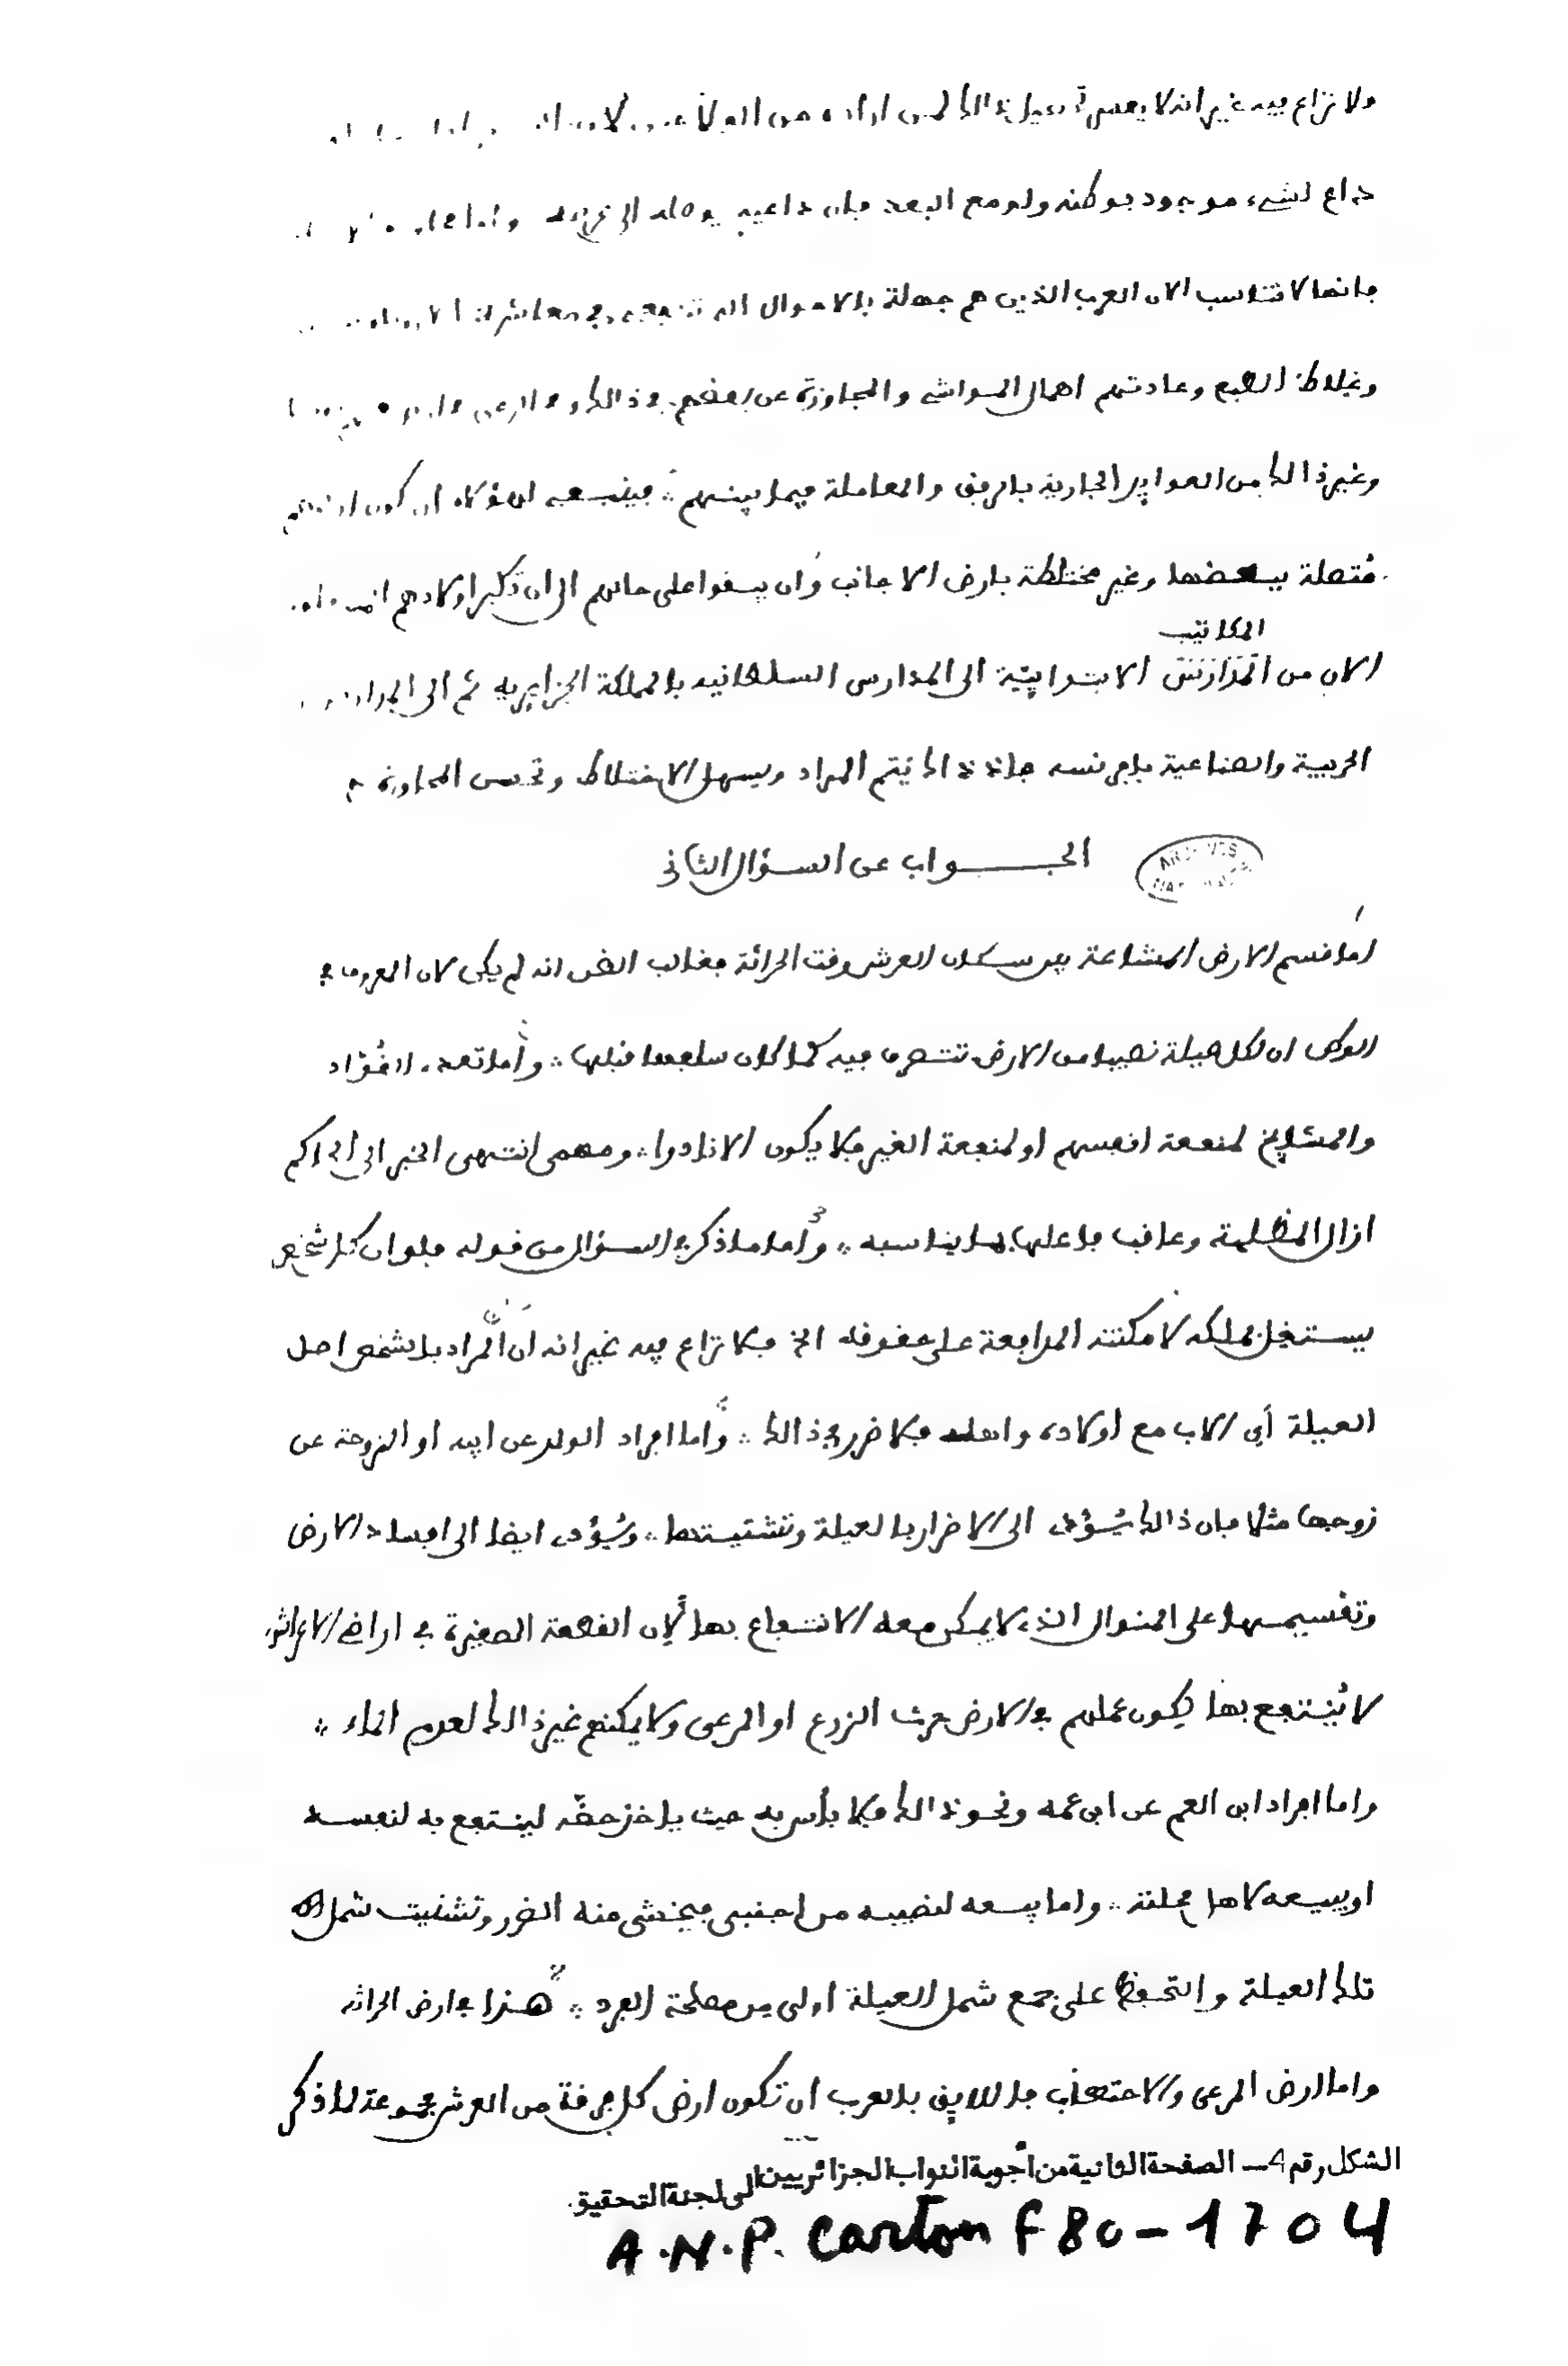 ولا نزاع فيه غير انه لا يعسر ذالك لمن اراده من
داع لشيء موجود بوطنه ولو مع البعد فان داعيه يوصله الى غرضه واما
فانها لا تناسب الان العرب الذين هم جهلة بالاحوال التي معاشرة
وغلاظ الطبع وعادتهم اهمال المواشي والمجاوزة عن بعضهم في ذالك
وغير ذالك من العوايد الجارية بالرفق والمعاملة فيما بينهم ∴ فينبغي ان كون
متصلة ببعضها وغير مختلطة بارض الاجانب وان يبقوا على حالهم الى ان تكبر اولادهم
المكاتيب
الان من المدارس الابتدايية الى المدارس السلطانية بالمملكة الجزايرية ثم الى
الحربية والصناعية بفرنسه فانذ ذالك يتم المراد ويسهل الاختلاط وتحسن المجاورة
الجــــواب عن السؤال الثاني
اما قسم الارض المشاعة بين سكان العرش وقت الحراثة فغالب الظن انه لم يكن لان العرف في
الوطن ان لكل عيلة نصيبا من الارض تتصرف فيه كما كان سلفها قبلها ∴ واما تعد القواد
والمشايخ لمنفعة انفسهم او لمنفعة الغير فلا يكون الا نادرا ∴ ومهمى انتهى الخبر الى الحاكم
ازال المظلمة وعاقب فاعلها بما يناسبه ∴ واما ما ذكر في السؤال من قوله فلو ان كل شخص
يستغل بملكه لامكنته المدافعة على حقوقه الخ فلا نزاع فيه غير انه ان المراد بالشخص اصل
العيلة أي الاب مع اولاده واهله فلا ضرر في ذالك ∴ واما افراد الولد عن ابيه او الزوجة عن
زوجها مثلا فان ذالك يؤدي الى الاضرار بالعيلة وتشتيتها ∴ ويؤدي ايضا الى افساد الارض
وتقسيمها على المنوال الذي لا يمكن معه الانتفاع بها لأن القطعة الصغيرة في اراضي الاعراش
لا يُنتفع بها لكون عملهم في الارض حرث الزرع او المرعى ولا يمكنهم غير ذالك لعدم الماء ∴
واما افراد ابن العم عن ابن عمه ونحو ذالك فلا بأس به حيث ياخذ حقه لينتفع به لنفسه
او يبيعه لاهل محلته ∴ واما بيعه لنصيبه من اجنبي فيخشى منه الضرر وتشتيت شمل
تلك العيلة والتحفظ على جمع شمل العيلة اولى من مصلحة الفرد ∴ هذا في ارض الحراثة
واما ارض المرعى والاحتطاب فاللايق بالعرب ان تكون ارض كل فرقة من العرش مجموعة لما ذكر
الشكل رقم 4 – الصفحة الثانية من أجوبة النواب الجزائريين الى لجنة التحقيق.
A.N.P. Carton F 80 – 1704